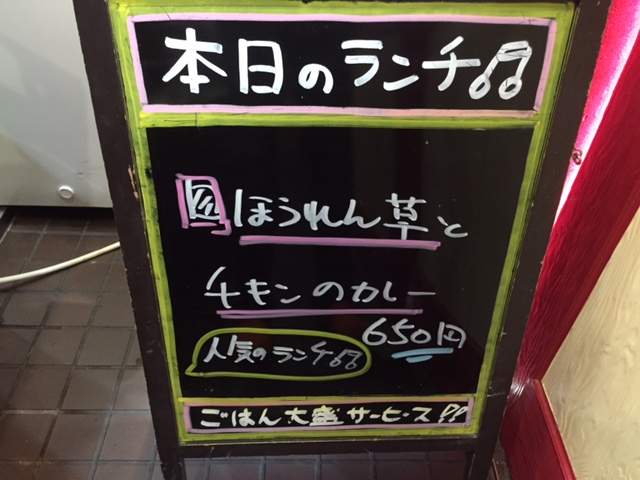 本日のランチ♫
ほうれん草と
チキンのカレー
650円
人気のランチ♫
ごはん大盛サービス!!